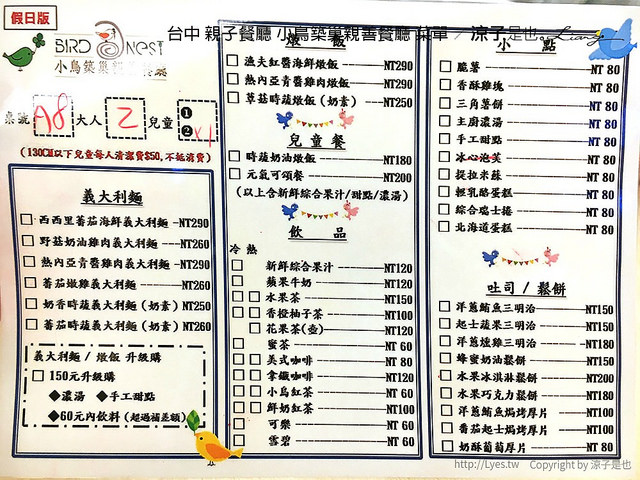 假日版
台中 親子餐廳 小鳥築巢親善餐廳 菜單 / 涼子是也 Liang
BIRD NEST
小鳥築巢親善餐廳
桌號 A8 大人 2 兒童 ❶ ❷ x1
(130CM以下兒童每人清潔費$50,不抵消費)
義大利麵
西西里蕃茄海鮮義大利麵 -NT290
野菇奶油雞肉義大利麵 ---NT260
熱內亞青醬雞肉義大利麵 -NT290
蕃茄燉雞義大利麵 ------NT260
奶香時蔬義大利麵(奶素) NT250
蕃茄時蔬義大利麵(奶素) NT260
義大利麵 / 燉飯 升級購
150元升級購
◆濃湯 ◆手工甜點
◆60元內飲料(超過補差額)
燉 飯
漁夫紅醬海鮮燉飯 ------NT290
熱內亞青醬雞肉燉飯 ----NT290
草菇時蔬燉飯(奶素) ---NT250
兒童餐
時蔬奶油燉飯 ---------NT180
元氣可頌餐 -----------NT200
(以上含新鮮綜合果汁/甜點/濃湯)
飲 品
冷 熱
新鮮綜合果汁 --------NT120
蘋果牛奶 ------------NT120
水果茶 --------------NT150
香橙柚子茶 ----------NT100
花果茶(壺)-----------NT120
蜜茶 ----------------NT 60
美式咖啡 ------------NT 80
拿鐵咖啡 ------------NT120
小鳥紅茶 ------------NT 60
鮮奶紅茶 ------------NT100
可樂 ----------------NT 60
雪碧 ----------------NT 60
小 點
脆薯 ----------------NT 80
香酥雞塊 ------------NT 80
三角薯餅 ------------NT 80
主廚濃湯 ------------NT 80
手工甜點 ------------NT 80
冰心泡芙 ------------NT 80
提拉米蘇 ------------NT 80
輕乳酪蛋糕 ----------NT 80
綜合瑞士捲 ----------NT 80
北海道蛋糕 ----------NT 80
吐司 / 鬆餅
洋蔥鮪魚三明治-------NT150
起士蔬果三明治-------NT150
洋蔥燻雞三明治------NT180
蜂蜜奶油鬆餅 --------NT150
水果冰淇淋鬆餅 ------NT200
水果巧克力鬆餅 ------NT180
洋蔥鮪魚焗烤厚片 ----NT100
番茄起士焗烤厚片 ----NT100
奶酥葡萄厚片 --------NT 80
http://Lyes.tw Copyright by 涼子是也